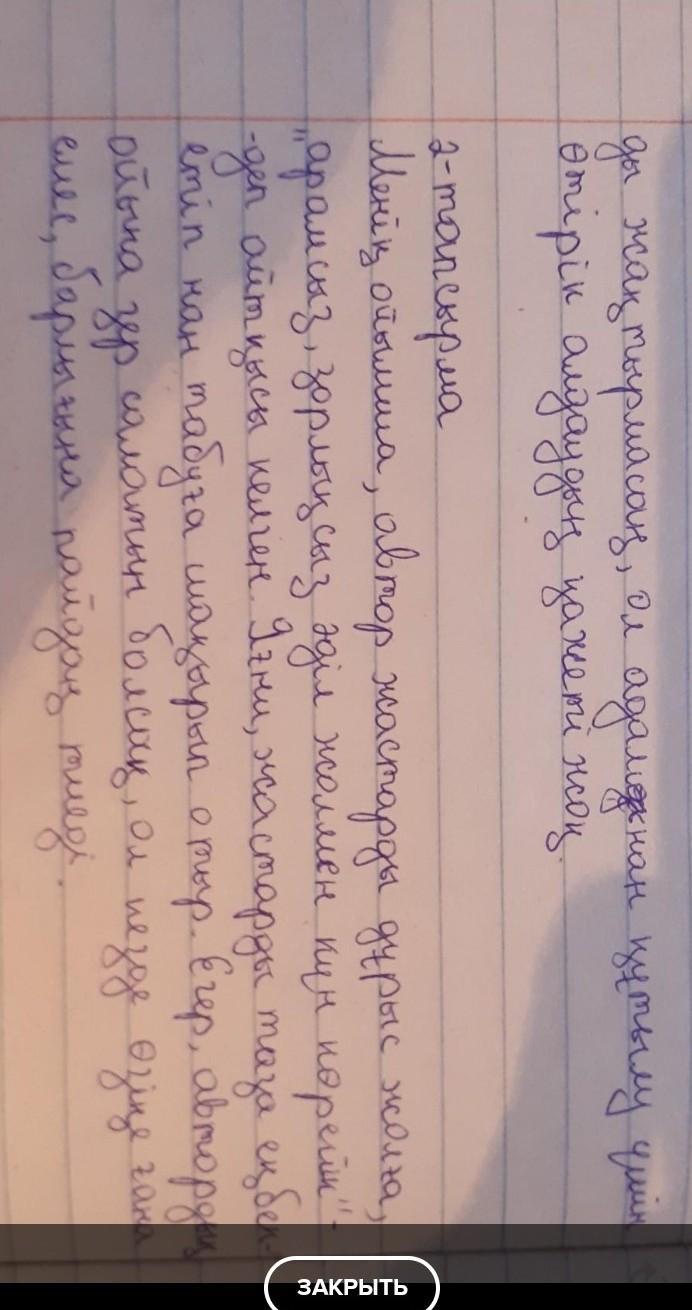 ды жақтырмасаң, ол адамнан құтылу үшін
өтірік алдаудың қажеті жоқ.
2-тапсырма
Менің ойымша, автор жастарды дұрыс жолға,
"арамсыз, зорлықсыз әділ жолмен күн көрейік" -
-деп айтқысы келген. Яғни, жастарды таза еңбек-
етіп нан табуға шақырып отыр. Егер, автордың
ойына зер салатын болсақ, ол кезде өзіңе ғана
емес, барлығына пайдаң тиеді.
ЗАКРЫТЬ